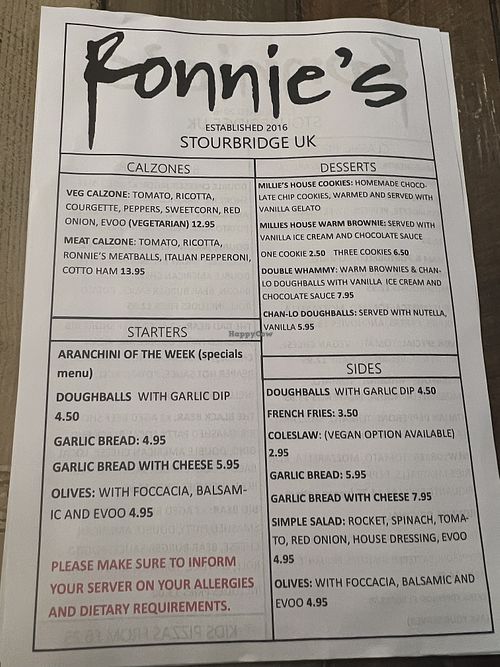 Ronnie's
ESTABLISHED 2016
STOURBRIDGE UK
CALZONES
VEG CALZONE: TOMATO, RICOTTA,
COURGETTE, PEPPERS, SWEETCORN, RED
ONION, EVOO (VEGETARIAN) 12.95
MEAT CALZONE: TOMATO, RICOTTA,
RONNIE'S MEATBALLS, ITALIAN PEPPERONI,
COTTO HAM 13.95
STARTERS
ARANCHINI OF THE WEEK (specials
menu)
DOUGHBALLS WITH GARLIC DIP
4.50
GARLIC BREAD: 4.95
GARLIC BREAD WITH CHEESE 5.95
OLIVES: WITH FOCCACIA, BALSAM-
IC AND EVOO 4.95
PLEASE MAKE SURE TO INFORM
YOUR SERVER ON YOUR ALLERGIES
AND DIETARY REQUIREMENTS.
DESSERTS
MILLIE'S HOUSE COOKIES: HOMEMADE CHOCO-
LATE CHIP COOKIES, WARMED AND SERVED WITH
VANILLA GELATO
MILLIES HOUSE WARM BROWNIE: SERVED WITH
VANILLA ICE CREAM AND CHOCOLATE SAUCE
ONE COOKIE 2.50 THREE COOKIES 6.50
DOUBLE WHAMMY: WARM BROWNIES & CHAN-
LO DOUGHBALLS WITH VANILLA ICE CREAM AND
CHOCOLATE SAUCE 7.95
CHAN-LO DOUGHBALLS: SERVED WITH NUTELLA,
VANILLA 5.95
SIDES
DOUGHBALLS WITH GARLIC DIP 4.50
FRENCH FRIES: 3.50
COLESLAW: (VEGAN OPTION AVAILABLE)
2.95
GARLIC BREAD: 5.95
GARLIC BREAD WITH CHEESE 7.95
SIMPLE SALAD: ROCKET, SPINACH, TOMA-
TO, RED ONION, HOUSE DRESSING, EVOO
4.95
OLIVES: WITH FOCCACIA, BALSAMIC AND
EVOO 4.95
HappyCow
KIDS PIZZAS FROM £6.25